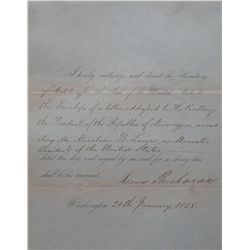 I hereby authorize and direct the Secretary
of State to affix the Seal of the United States to
the Envelope of a letter addressed to His Excellency
the President of the Republic of Nicaragua, accred
iting Mr. Mirabeau B. Lamar as Minister
Resident of the United States,
dated this day and signed by me and for so doing this
shall be his warrant.
James Buchanan
Washington 20th January, 1858.